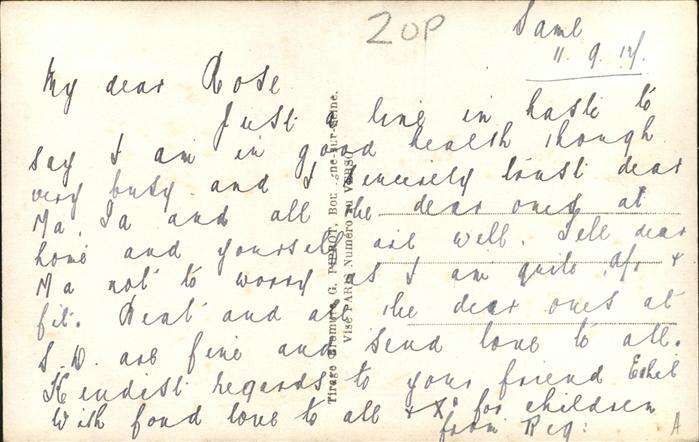 20P
Same
11. 9. 17.
My dear Rose
Just a line in haste to
say I am in good health though
very busy and I sincerely trust dear
Ma, Da and all the dear ones at
home and yourself are well. Tell dear
Ma not to worry as I am quite A/1 &
fit. Beat and all the dear ones at
S.D. are fine and send love to all.
Kindest regards to your friend Ethel
With fond love to all & X's for children
from Reg:
A
Tirage Bromure G. PIPROT, Boulogne-sur-Seine.
Visé PARIS Numéro au VERSO